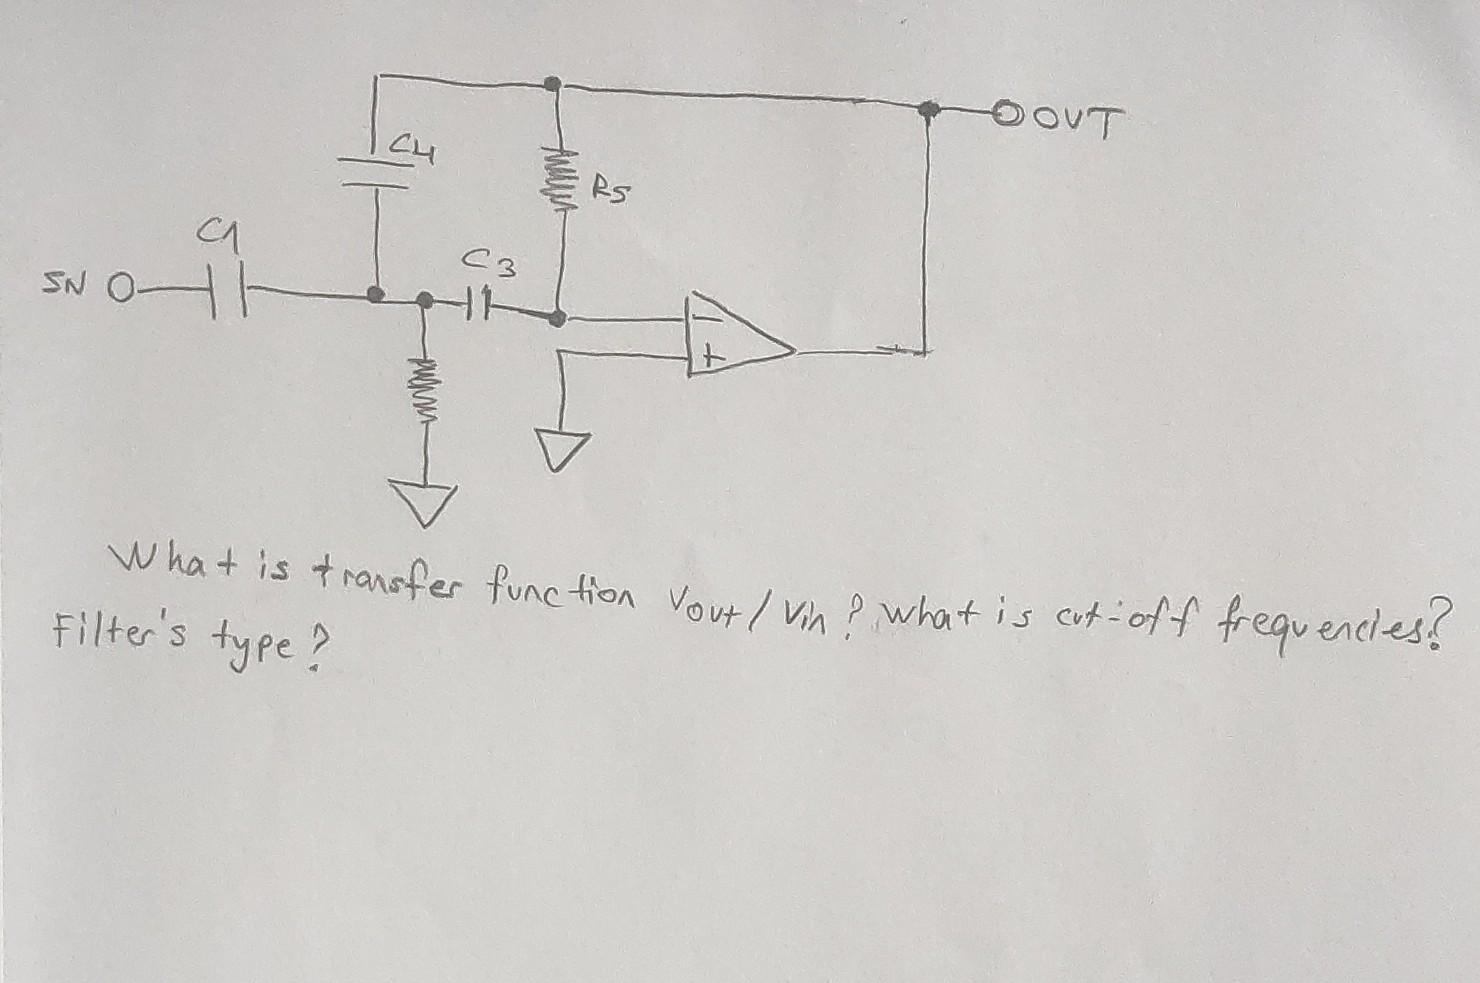 OUT
C4
R5
C1
C3
SN
-
+
What is transfer function Vout/Vin? What is cut-off frequencies?
Filter's type?